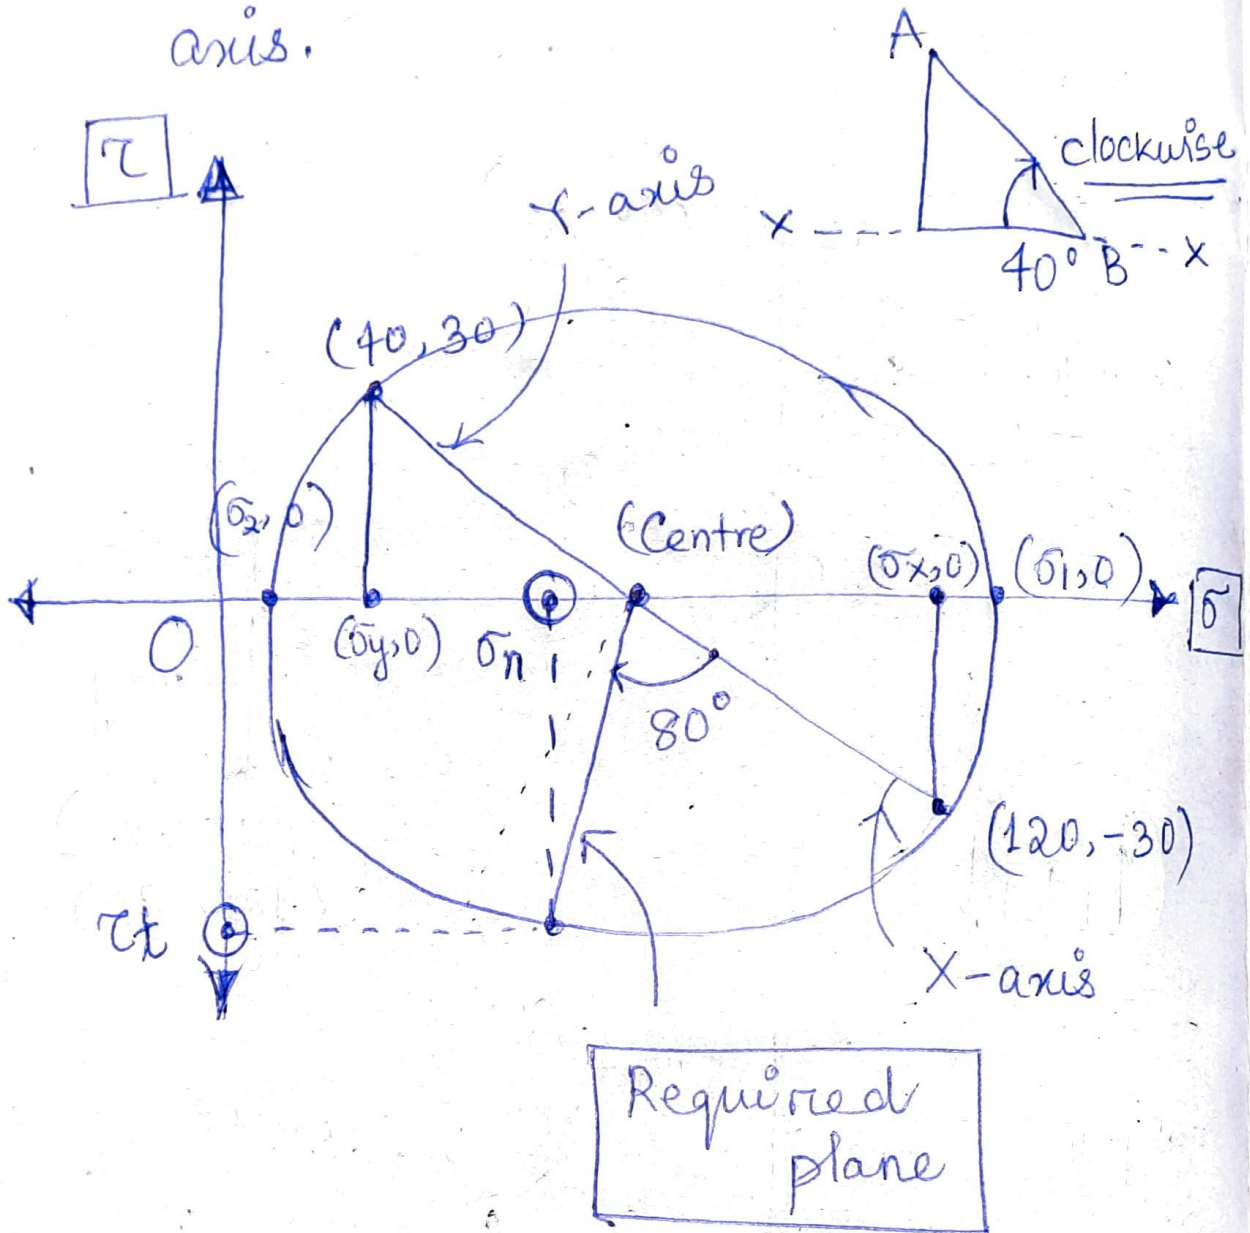 axis.
A
τ
clockwise
Y-axis
X
40° B
X
(40, 30)
(σ₂, 0)
(Centre)
(σx, 0)
(σ₁, 0)
σ
O
(σy, 0)
σn
80°
(120, -30)
τt
X-axis
Required
plane